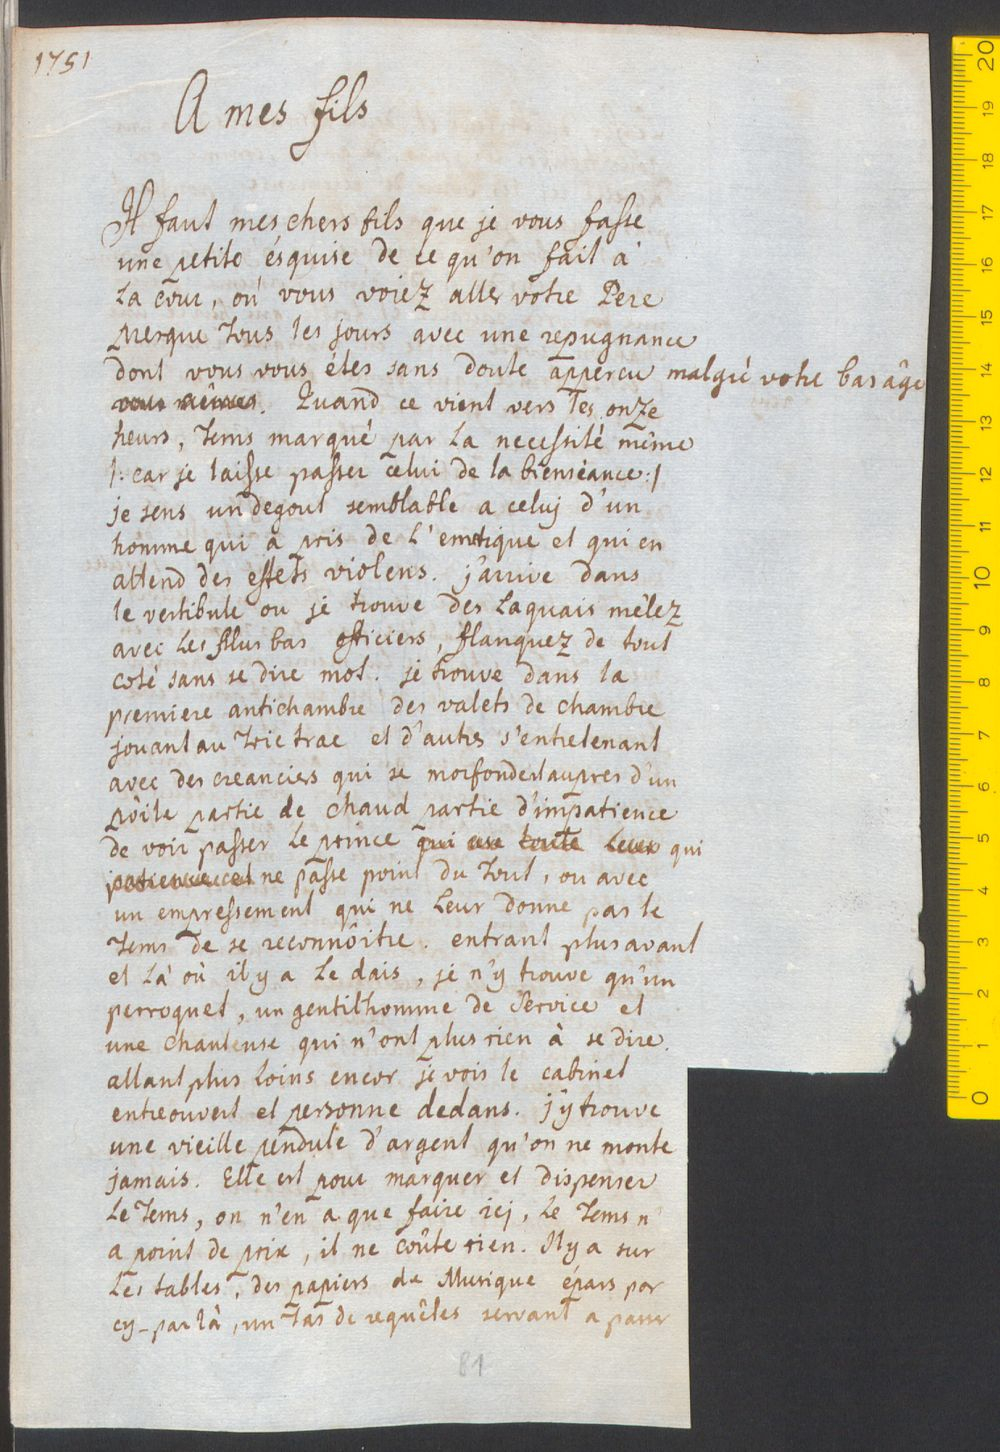 1751
A mes fils
Il faut mes chers fils que je vous fasse
une petite ésquise de ce qu'on fait à
La cour, où vous voiez aller votre Pere
presque tous les jours avec une repugnance
dont vous vous étes sans doute apperçu malgré votre bas âge
vous mêmes. Quand ce vient vers les onze
heurs, tems marqué par la necessité même
/: car je laisse passer celui de la bienseance :/
je sens un degout semblable a celuj d'un
homme qui a pris de l'emetique et qui en
attend des effets violens. j'arrive dans
le vertibule ou je trouve des Laquais mêlez
avec les plus bas officiers, flanquez de tout
coté sans se dire mot. je trouve dans la
premiere antichambre des valets de chambre
jouant au Trictrac et d'autres s'entretenant
avec des creanciers qui se morfondent aupres d'un
poîle partie de chaud partie d'impatience
de voir passer Le prince qui use toute leur qui
patience et ne passe point du tout, ou avec
un empressement qui ne Leur donne pas le
Tems de se reconnôitre. entrant plus avant
et Là où il y a Le dais, je n'y trouve qu'un
perroquet, un gentilhomme de Service et
une chanteuse qui n'ont plus rien à se dire.
allant plus Loins encor je vois le cabinet
entreouvert et personne dedans. j'y trouve
une vieille pendule d'argent qu'on ne monte
jamais. Elle est pour marquer et dispenser
Le Tems, on n'en a que faire icj, Le Tems n'
a point de prix, il ne coûte rien. Il y a sur
Les tables, des papiers de Musique épars par
cy-par là, un Tas de requêtes servant a passer
81